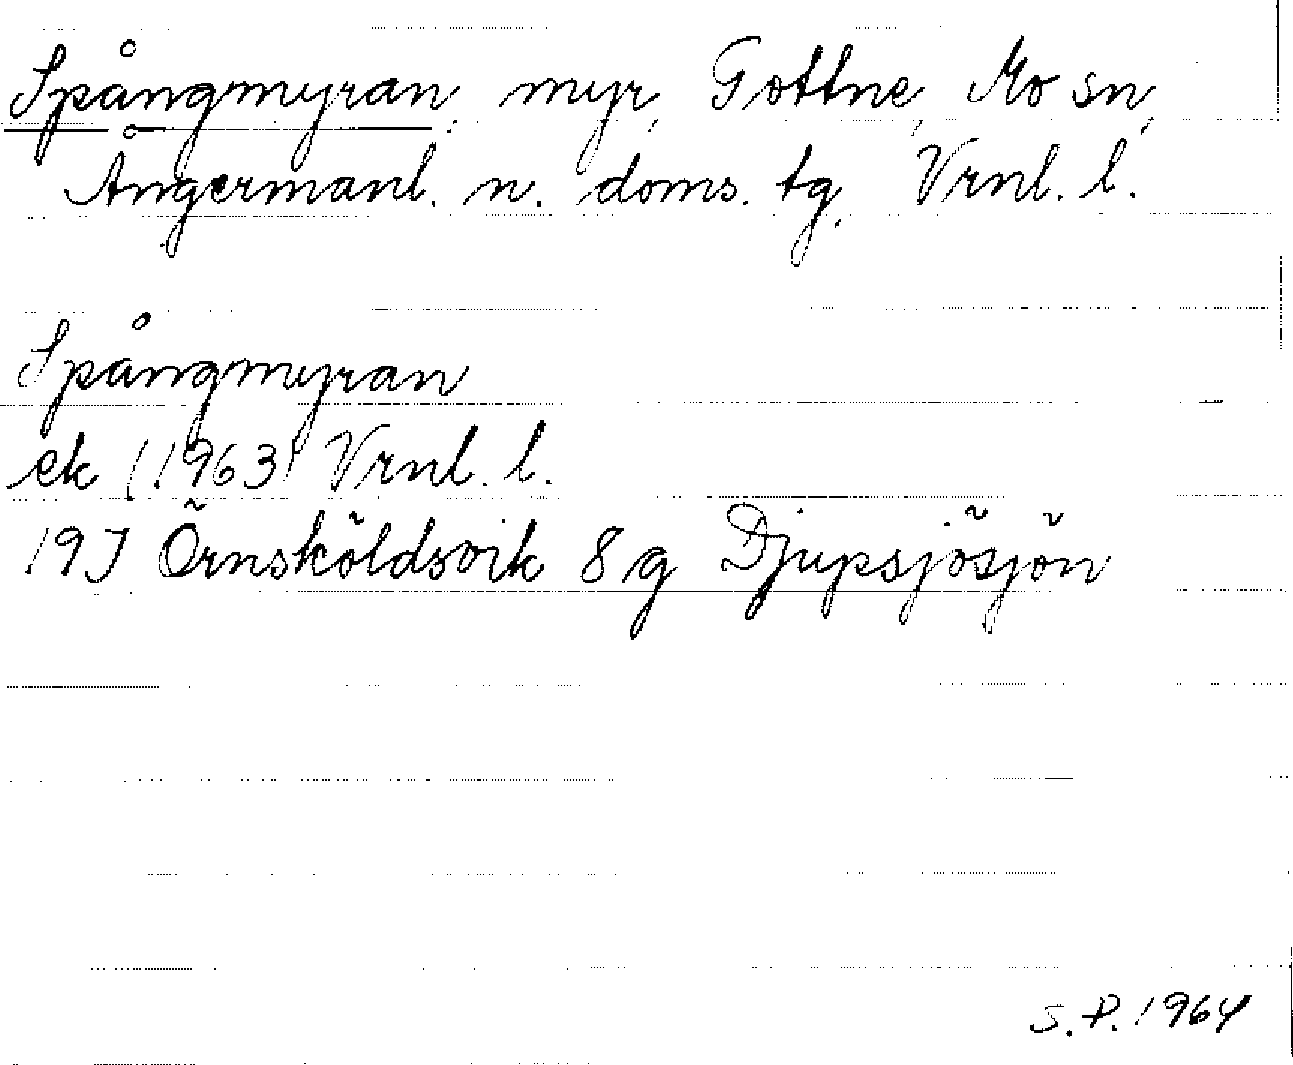 Spångmyran, myr, Gottne, Mo sn,
Ångermanl. n. doms. tg, Vrnl. l.
Spångmyran
ek (1963) Vrnl. l.
19J Örnsköldsvik 8 g Djupsjösjön
S.P. 1964